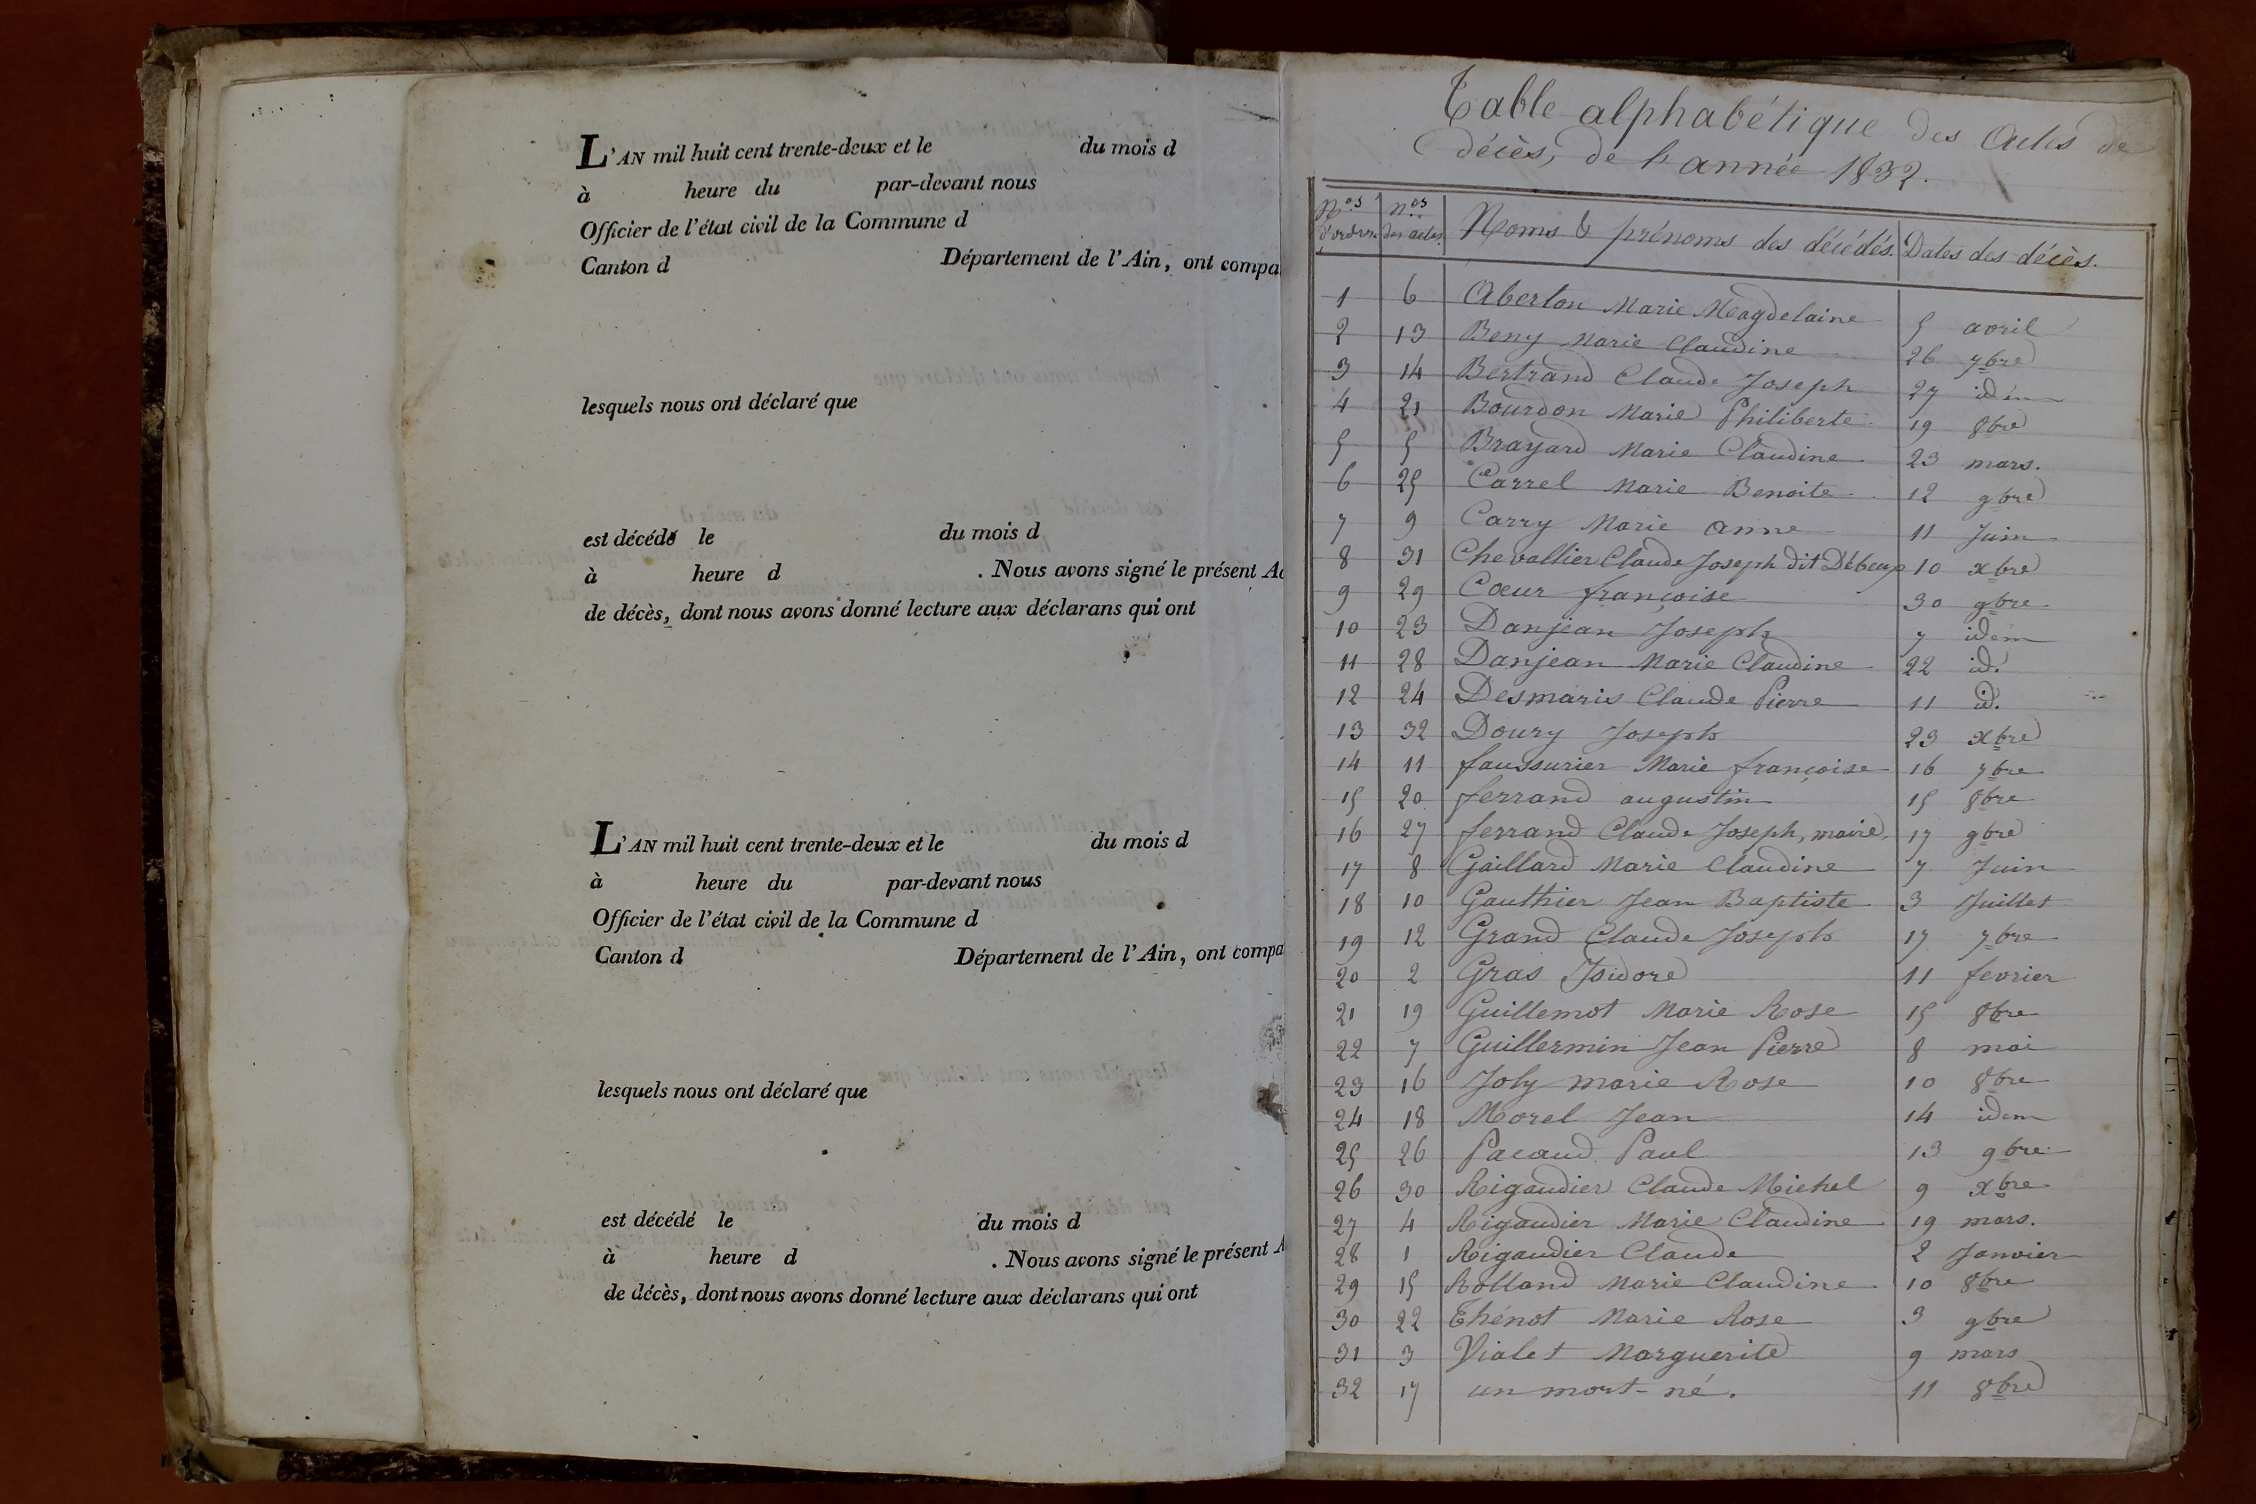 L'AN mil huit cent trente-deux et le du mois d
à heure du par-devant nous
Officier de l'état civil de la Commune d
Canton d Département de l'Ain, ont compa
lesquels nous ont déclaré que
est décédé le du mois d
à heure d . Nous avons signé le présent Ac
de décès, dont nous avons donné lecture aux déclarans qui ont
L'AN mil huit cent trente-deux et le du mois d
à heure du par-devant nous
Officier de l'état civil de la Commune d
Canton d Département de l'Ain, ont compa
lesquels nous ont déclaré que
est décédé le du mois d
à heure d . Nous avons signé le présent A
de décès, dont nous avons donné lecture aux déclarans qui ont
Table alphabétique des Actes de
décès, de l'année 1832.
Nos d'ordre Nos des actes Noms & prénoms des décédés. Dates des décès.
1 6 Aberlon Marie Magdelaine 5 avril
2 13 Beny Marie Claudine 26 7bre
3 14 Bertrand Claude Joseph 27 idem
4 21 Bourdon Marie Philiberte 19 8bre
5 5 Brayard Marie Claudine 23 mars.
6 25 Carrel Marie Benoite 12 9bre
7 9 Carry Marie anne 11 Juin
8 31 Chevallier Claude Joseph dit 10 xbre
9 29 Cœur françoise 30 9bre
10 23 Danjean Joseph 7 idem
11 28 Danjean Marie Claudine 22 id.
12 24 Desmaris Claude Pierre 11 id.
13 32 Doury Joseph 23 xbre
14 11 faussurier Marie françoise 16 7bre
15 20 ferrand augustin 15 8bre
16 27 ferrand Claude Joseph, maire. 17 9bre
17 8 Gaillard Marie Claudine 7 Juin
18 10 Gauthier Jean Baptiste 3 Juillet
19 12 Grand Claude Joseph 17 7bre
20 2 Gras Isidore 11 fevrier
21 19 Guillemot Marie Rose 15 8bre
22 7 Guillermin Jean Pierre 8 mai
23 16 Joly marie Rose 10 8bre
24 18 Morel Jean 14 idem
25 26 Pacaud Paul 13 9bre
26 30 Rigaudier Claude Michel 9 xbre
27 4 Rigaudier Marie Claudine 19 mars.
28 1 Rigaudier Claude 2 Janvier
29 15 Rolland Marie Claudine 10 8bre
30 22 Thénot Marie Rose 3 9bre
31 3 Vialet Marguerite 9 mars
32 17 un mort-né. 11 8bre